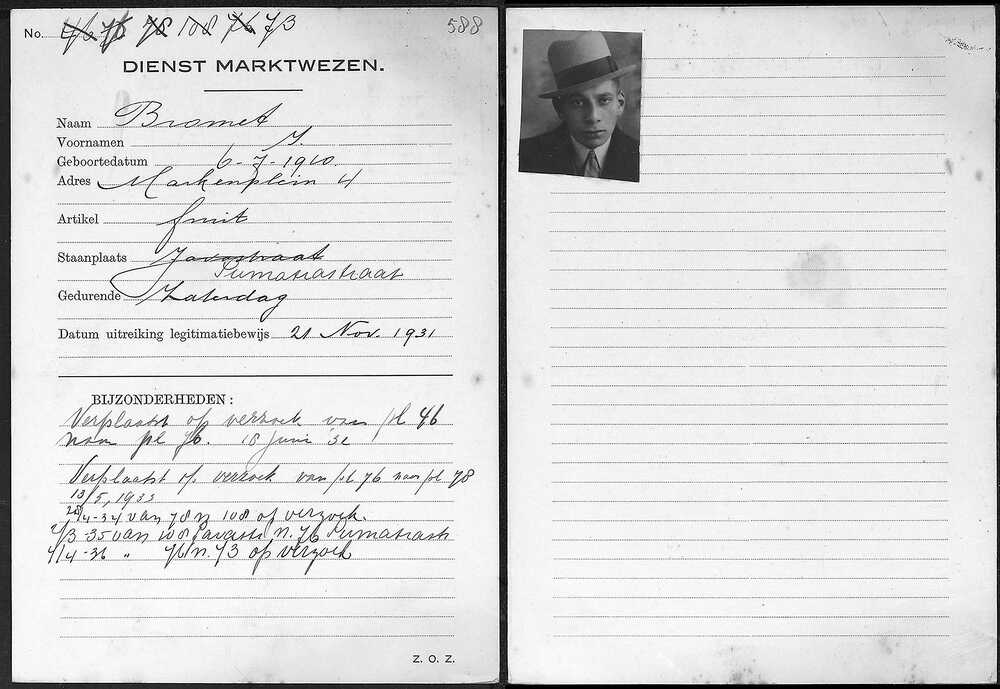 No. 46 76 78 108 76 73
588
DIENST MARKTWEZEN.
Naam Bromet
Voornamen I.
Geboortedatum 6-7-1910.
Adres Markenplein 4
Artikel fruit
Staanplaats Javastraat
Sumatrastraat
Gedurende Zaterdag
Datum uitreiking legitimatiebewijs 21 Nov. 1931
BIJZONDERHEDEN:
Verplaatst op verzoek van pl 46
naar pl 76. 18 Juni '32
Verplaatst op verzoek van pl 76 naar pl 78
13/5, 1933
28/4-34 van 78 n 108 op verzoek.
2/3-35 van 108 Javastr. n. 76 Sumatrastr
4/4-36 " 76 n. 73 op verzoek
Z. O. Z.